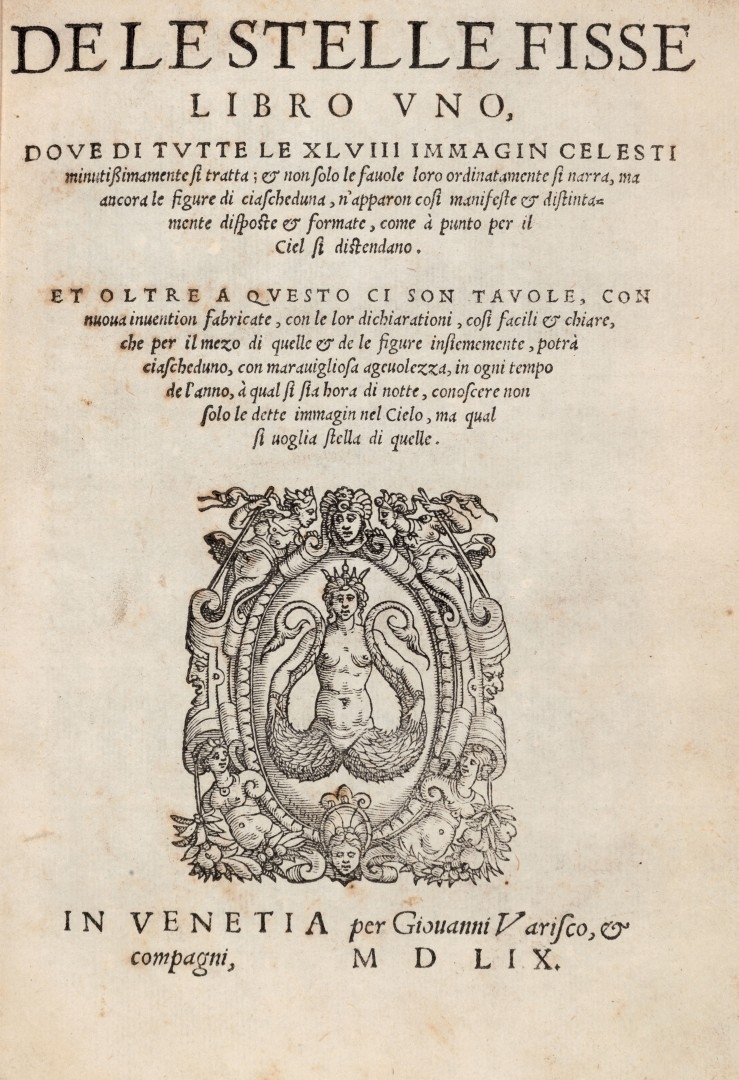 DE LE STELLE FISSE
LIBRO VNO,
DOVE DI TVTTE LE XLVIII IMMAGIN CELESTI
minutißimamente ſi tratta; & non ſolo le fauole loro ordinatamente ſi narra, ma
ancora le figure di ciaſcheduna, n'apparon coſi manifeſte & diſtinta=
mente diſpoſte & formate, come à punto per il
Ciel ſi diſtendano.
ET OLTRE A QVESTO CI SON TAVOLE, CON
nuoua inuention fabricate, con le lor dichiarationi, coſi facili & chiare,
che per il mezo di quelle & de le figure inſiememente, potrà
ciaſcheduno, con marauiglioſa ageuolezza, in ogni tempo
de l'anno, à qual ſi ſia hora di notte, conoſcere non
ſolo le dette immagin nel Cielo, ma qual
ſi uoglia ſtella di quelle.
IN VENETIA per Giouanni Variſco, &
compagni, M D LIX.